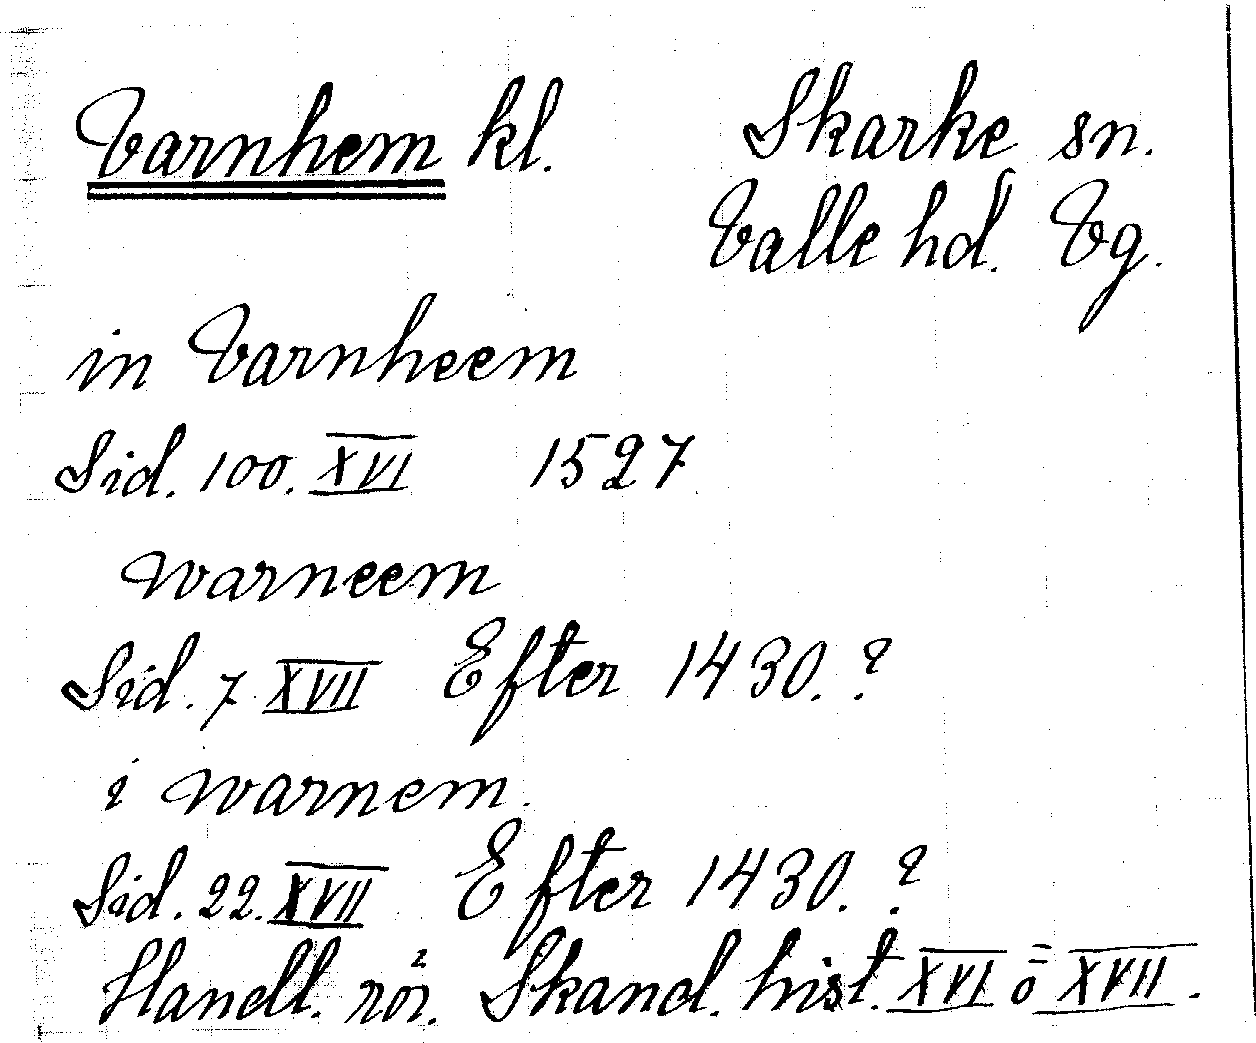 Varnhem kl. Skarke sn.
Valle hd. Vg.
in Varnheem
Sid. 100. XVI 1527
Warneem
Sid. 7 XVII Efter 1430.?
i Warnem.
Sid. 22. XVII Efter 1430.?
Handl. rör. Skand. hist. XVI o XVII.